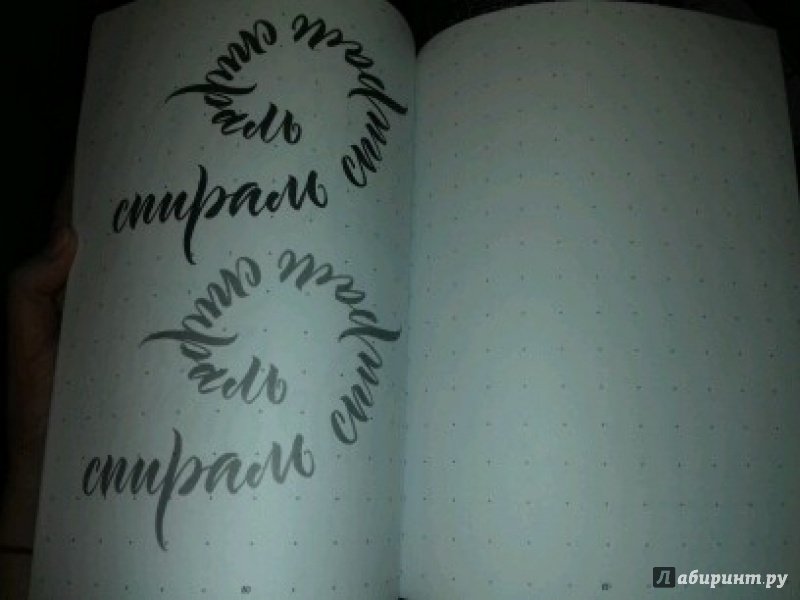 спираль
спираль
спираль
спираль
спираль
спираль
80
Лабиринт.ру